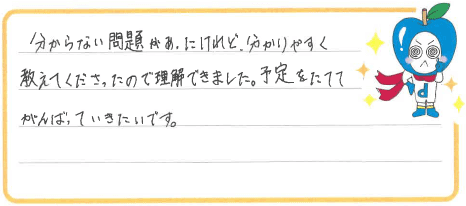 分からない問題があったけれど、分かりやすく
教えてくださったので理解できました。予定をたてて
がんばっていきたいです。
d